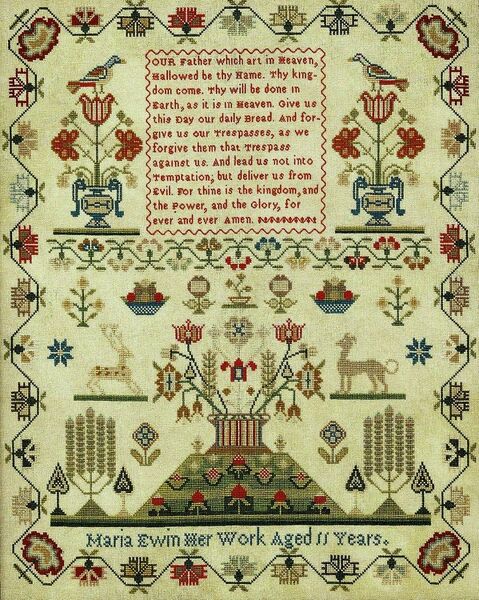 OUR Father which art in Heaven,
Hallowed be thy Name. Thy king-
dom come. Thy will be done in
Earth, as it is in Heaven. Give us
this Day our daily Bread. And for-
give us our Trespasses, as we
forgive them that Trespass
against us. And lead us not into
Temptation; but deliver us from
Evil. For thine is the kingdom, and
the Power, and the Glory, for
ever and ever Amen.
Maria Ewin Her Work Aged 11 Years.